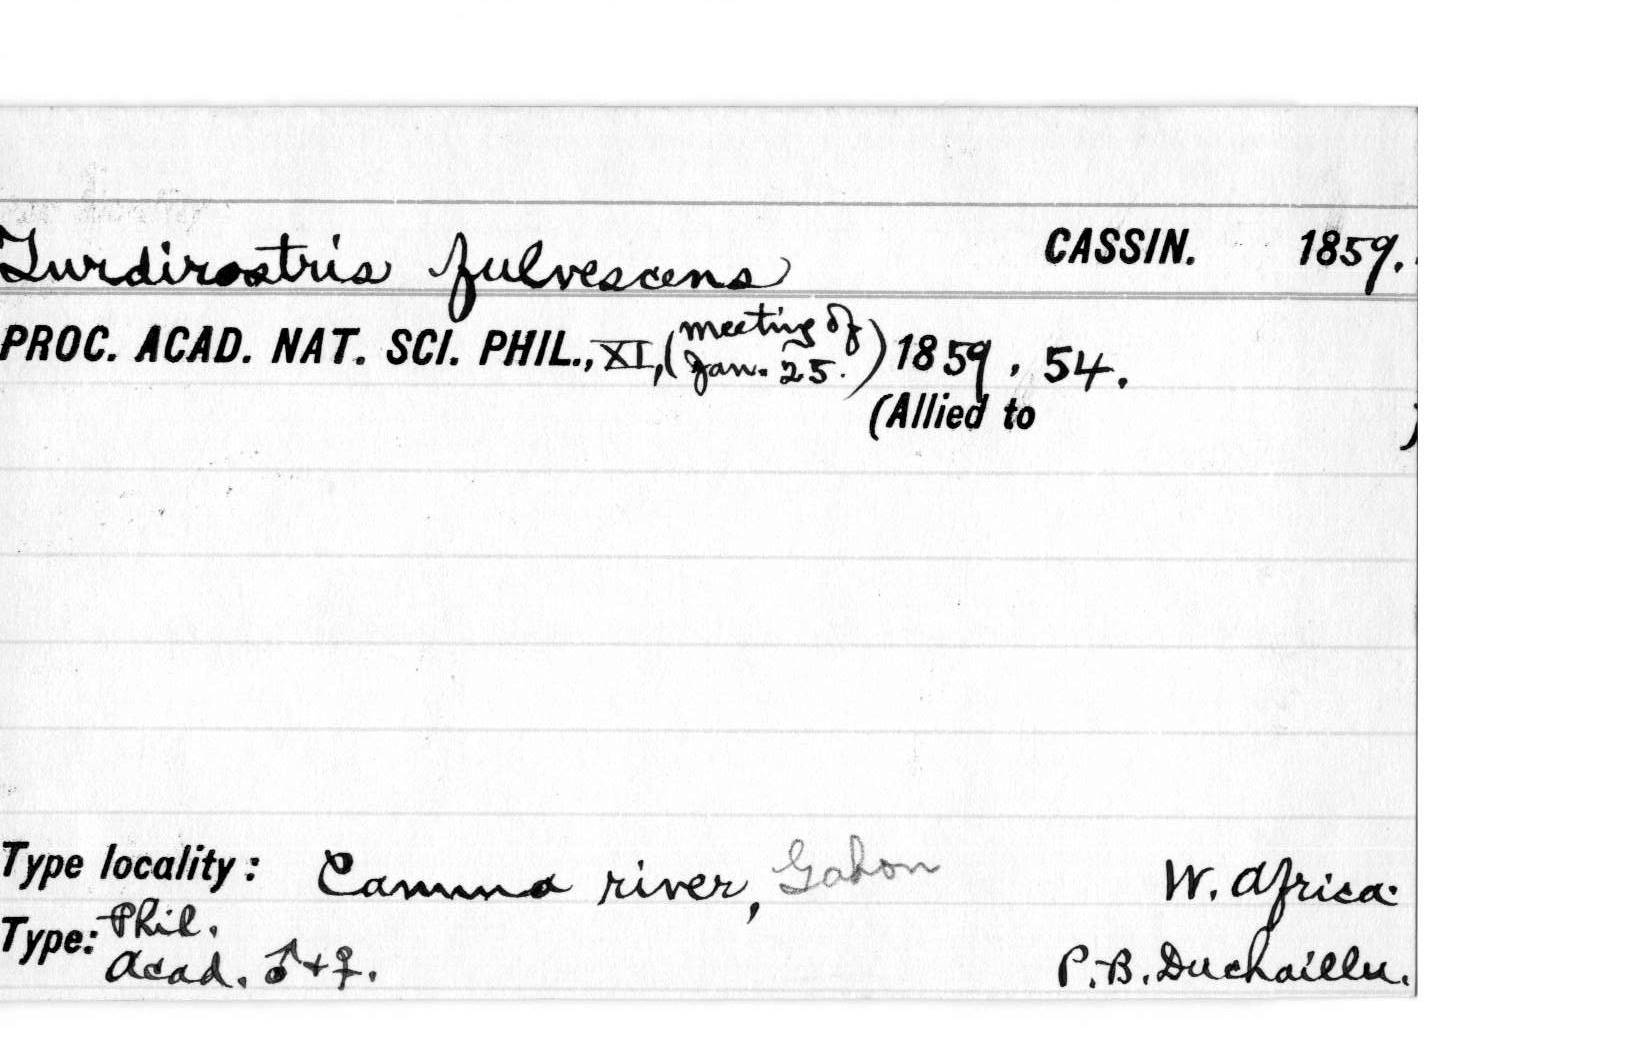 Turdirostris fulvescens CASSIN. 1859.
PROC. ACAD. NAT. SCI. PHIL., XI, (meeting of Jan. 25.) 1859, 54.
(Allied to )
Type locality: Camma river, Gabon W. Africa.
Type: Phil. Acad. ♂ + ♀. P. B. Duchaillu.